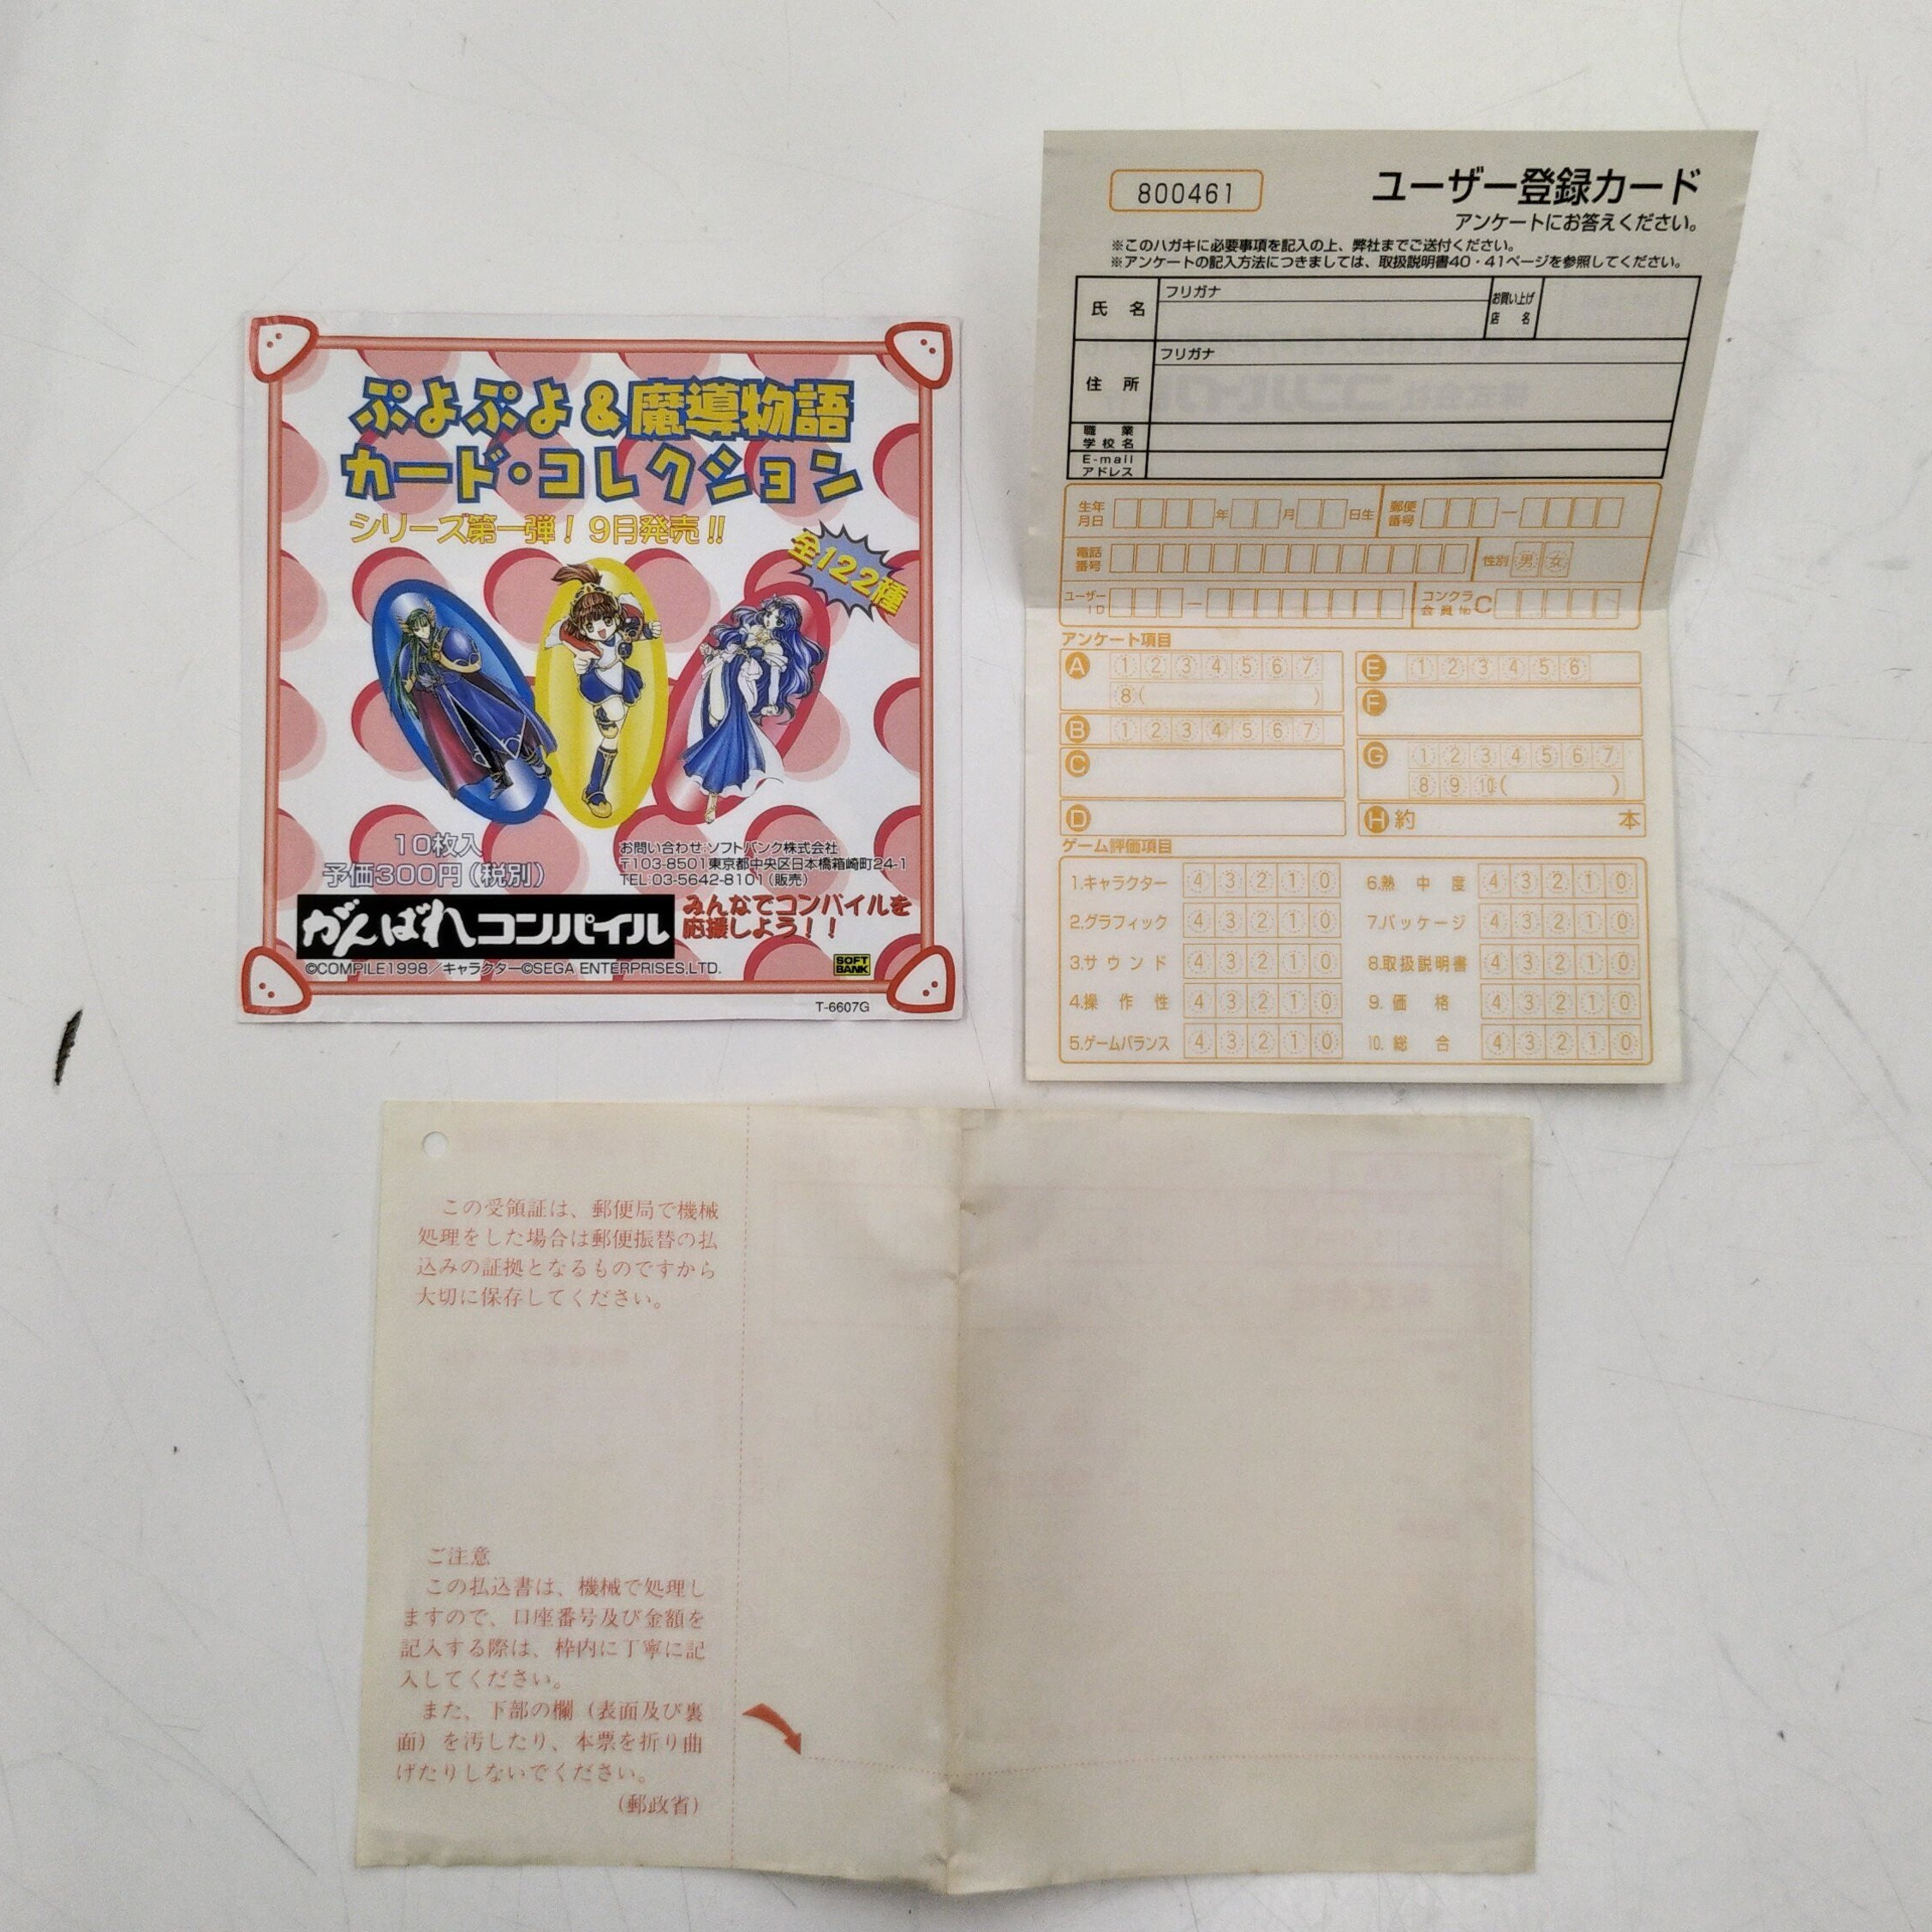 ぷよぷよ&魔導物語
カード・コレクション
シリーズ第一弾！9月発売!!
全122種
10枚入
予価300円(税別)
お問い合わせ:ソフトバンク株式会社
〒103-8501東京都中央区日本橋箱崎町24-1
TEL:03-5642-8101(販売)
がんばれコンパイル
みんなでコンパイルを
応援しよう！！
©COMPILE1998／キャラクター©SEGA ENTERPRISES,LTD.
SOFT
BANK
T-6607G
800461
ユーザー登録カード
アンケートにお答えください。
※このハガキに必要事項を記入の上、弊社までご送付ください。
※アンケートの記入方法につきましては、取扱説明書40・41ページを参照してください。
氏 名
フリガナ
お買い上げ
店 名
住 所
フリガナ
職 業
学校名
E-mail
アドレス
生年
月日
年 月 日生
郵便
番号
電話
番号
性別 男 女
ユーザー
ID
コンクラ
会員No C
アンケート項目
A 1 2 3 4 5 6 7
8 ( )
B 1 2 3 4 5 6 7
C
D
E 1 2 3 4 5 6
F
G 1 2 3 4 5 6 7
8 9 10 ( )
H 約 本
ゲーム評価項目
1.キャラクター 4 3 2 1 0
2.グラフィック 4 3 2 1 0
3.サウンド 4 3 2 1 0
4.操作性 4 3 2 1 0
5.ゲームバランス 4 3 2 1 0
6.熱中度 4 3 2 1 0
7.パッケージ 4 3 2 1 0
8.取扱説明書 4 3 2 1 0
9.価格 4 3 2 1 0
10.総合 4 3 2 1 0
この受領証は、郵便局で機械
処理をした場合は郵便振替の払
込みの証拠となるものですから
大切に保存してください。
ご注意
この払込書は、機械で処理し
ますので、口座番号及び金額を
記入する際は、枠内に丁寧に記
入してください。
また、下部の欄（表面及び裏
面）を汚したり、本票を折り曲
げたりしないでください。
（郵政省）